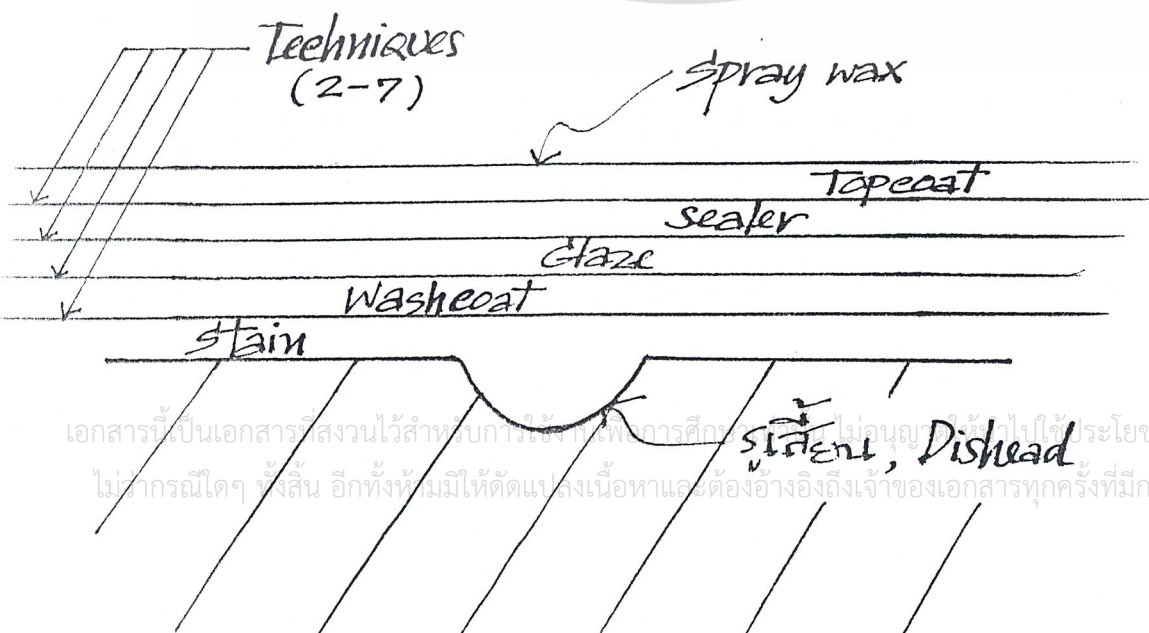 Techniques
(2-7)
spray wax
Topcoat
sealer
Glaze
Washcoat
stain
รูเสี้ยน, Dishead
เอกสารนี้เป็นเอกสารที่สงวนไว้สำหรับการใช้งานเพื่อการศึกษาเท่านั้น ไม่อนุญาตให้นำไปใช้ประโยช
ไม่ว่ากรณีใดๆ ทั้งสิ้น อีกทั้งห้ามมิให้ดัดแปลงเนื้อหาและต้องอ้างอิงถึงเจ้าของเอกสารทุกครั้งที่มีก